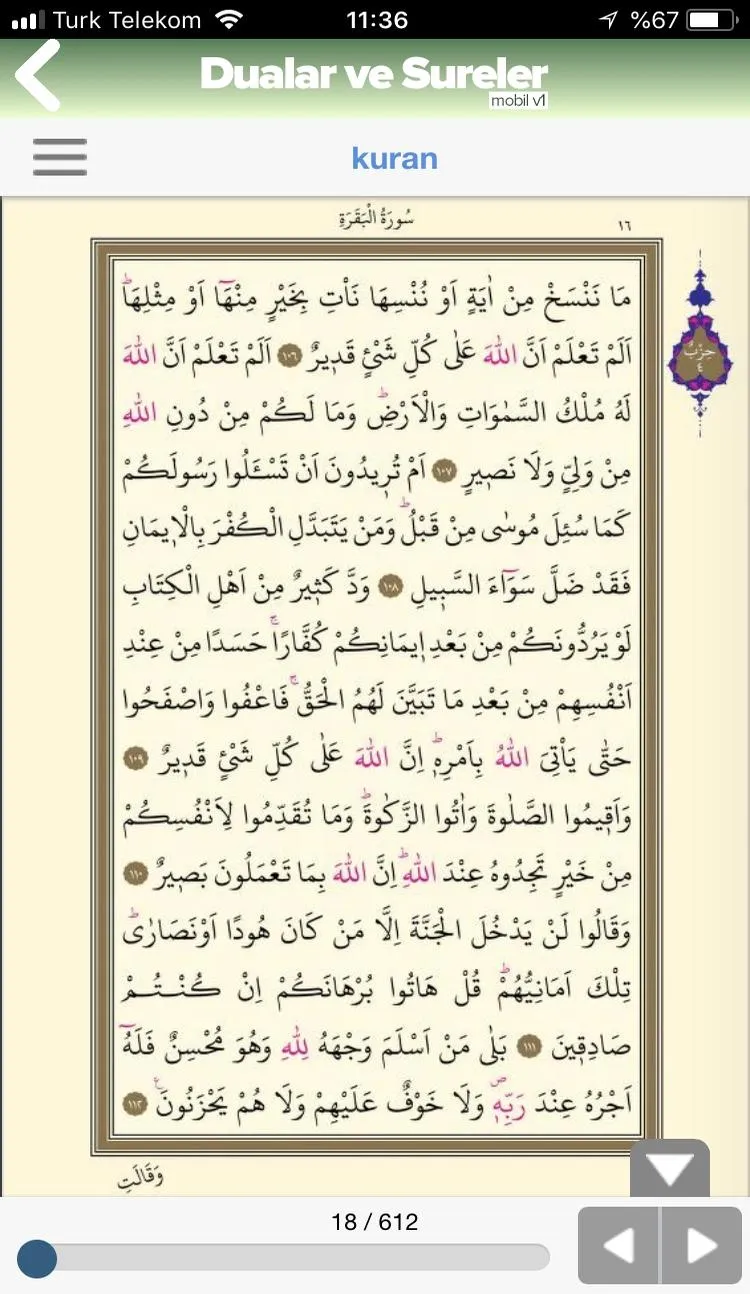 Turk Telekom 11:36 %67
Dualar ve Sureler
mobil v1
kuran
سُورَةُ الْبَقَرَةِ ١٦
حِزْبُ
٤
مَا نَنْسَخْ مِنْ اٰيَةٍ اَوْ نُنْسِهَا نَأْتِ بِخَيْرٍ مِنْهَٓا اَوْ مِثْلِهَاۜ
اَلَمْ تَعْلَمْ اَنَّ اللّٰهَ عَلٰى كُلِّ شَيْءٍ قَد۪يرٌ ﴿١٠٦﴾ اَلَمْ تَعْلَمْ اَنَّ اللّٰهَ
لَهُ مُلْكُ السَّمٰوَاتِ وَالْاَرْضِۜ وَمَا لَكُمْ مِنْ دُونِ اللّٰهِ
مِنْ وَلِيٍّ وَلَا نَص۪يرٍ ﴿١٠٧﴾ اَمْ تُر۪يدُونَ اَنْ تَسْـَٔلُوا رَسُولَكُمْ
كَمَا سُئِلَ مُوسٰى مِنْ قَبْلُۜ وَمَنْ يَتَبَدَّلِ الْكُفْرَ بِالْا۪يمَانِ
فَقَدْ ضَلَّ سَوَٓاءَ السَّب۪يلِ ﴿١٠٨﴾ وَدَّ كَث۪يرٌ مِنْ اَهْلِ الْكِتَابِ
لَوْ يَرُدُّونَكُمْ مِنْ بَعْدِ ا۪يمَانِكُمْ كُفَّارًاۚ حَسَدًا مِنْ عِنْدِ
اَنْفُسِهِمْ مِنْ بَعْدِ مَا تَبَيَّنَ لَهُمُ الْحَقُّۚ فَاعْفُوا وَاصْفَحُوا
حَتّٰى يَأْتِيَ اللّٰهُ بِاَمْرِه۪ۜ اِنَّ اللّٰهَ عَلٰى كُلِّ شَيْءٍ قَد۪يرٌ ﴿١٠٩﴾
وَاَق۪يمُوا الصَّلٰوةَ وَاٰتُوا الزَّكٰوةَۜ وَمَا تُقَدِّمُوا لِاَنْفُسِكُمْ
مِنْ خَيْرٍ تَجِدُوهُ عِنْدَ اللّٰهِۜ اِنَّ اللّٰهَ بِمَا تَعْمَلُونَ بَص۪يرٌ ﴿١١٠﴾
وَقَالُوا لَنْ يَدْخُلَ الْجَنَّةَ اِلَّا مَنْ كَانَ هُودًا اَوْ نَصَارٰىۜ
تِلْكَ اَمَانِيُّهُمْۜ قُلْ هَاتُوا بُرْهَانَكُمْ اِنْ كُنْتُمْ
صَادِق۪ينَ ﴿١١١﴾ بَلٰى مَنْ اَسْلَمَ وَجْهَهُ لِلّٰهِ وَهُوَ مُحْسِنٌ فَلَهُٓ
اَجْرُهُ عِنْدَ رَبِّه۪ۖ وَلَا خَوْفٌ عَلَيْهِمْ وَلَا هُمْ يَحْزَنُونَ۟ ﴿١١٢﴾
وَقَالَتِ
18 / 612